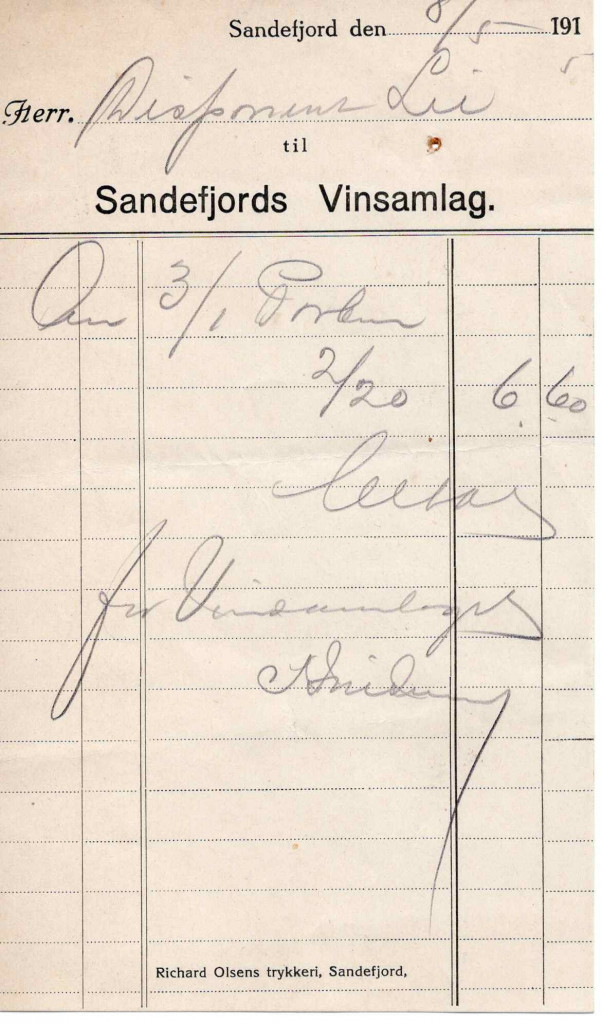 Sandefjord den 8/5 1915
Herr. Disponent Lie
til
Sandefjords Vinsamlag.
An 3/1 Portvin
2/20 6 60
Betalt
for Vinsamlaget
Richard Olsens trykkeri, Sandefjord,